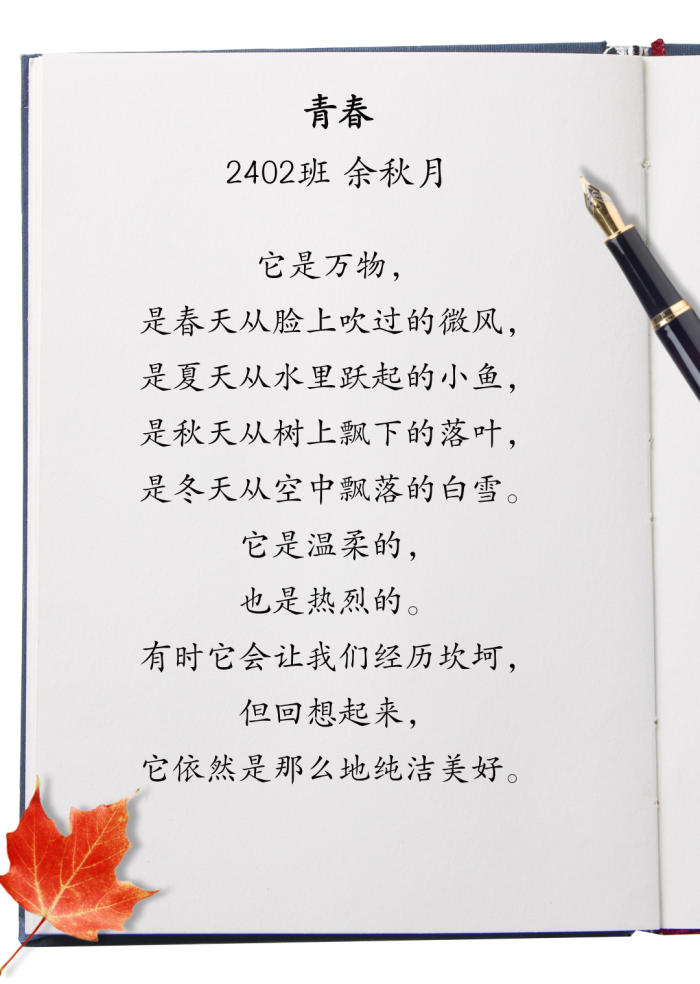 青春
2402班 余秋月
它是万物，
是春天从脸上吹过的微风，
是夏天从水里跃起的小鱼，
是秋天从树上飘下的落叶，
是冬天从空中飘落的白雪。
它是温柔的，
也是热烈的。
有时它会让我们经历坎坷，
但回想起来，
它依然是那么地纯洁美好。